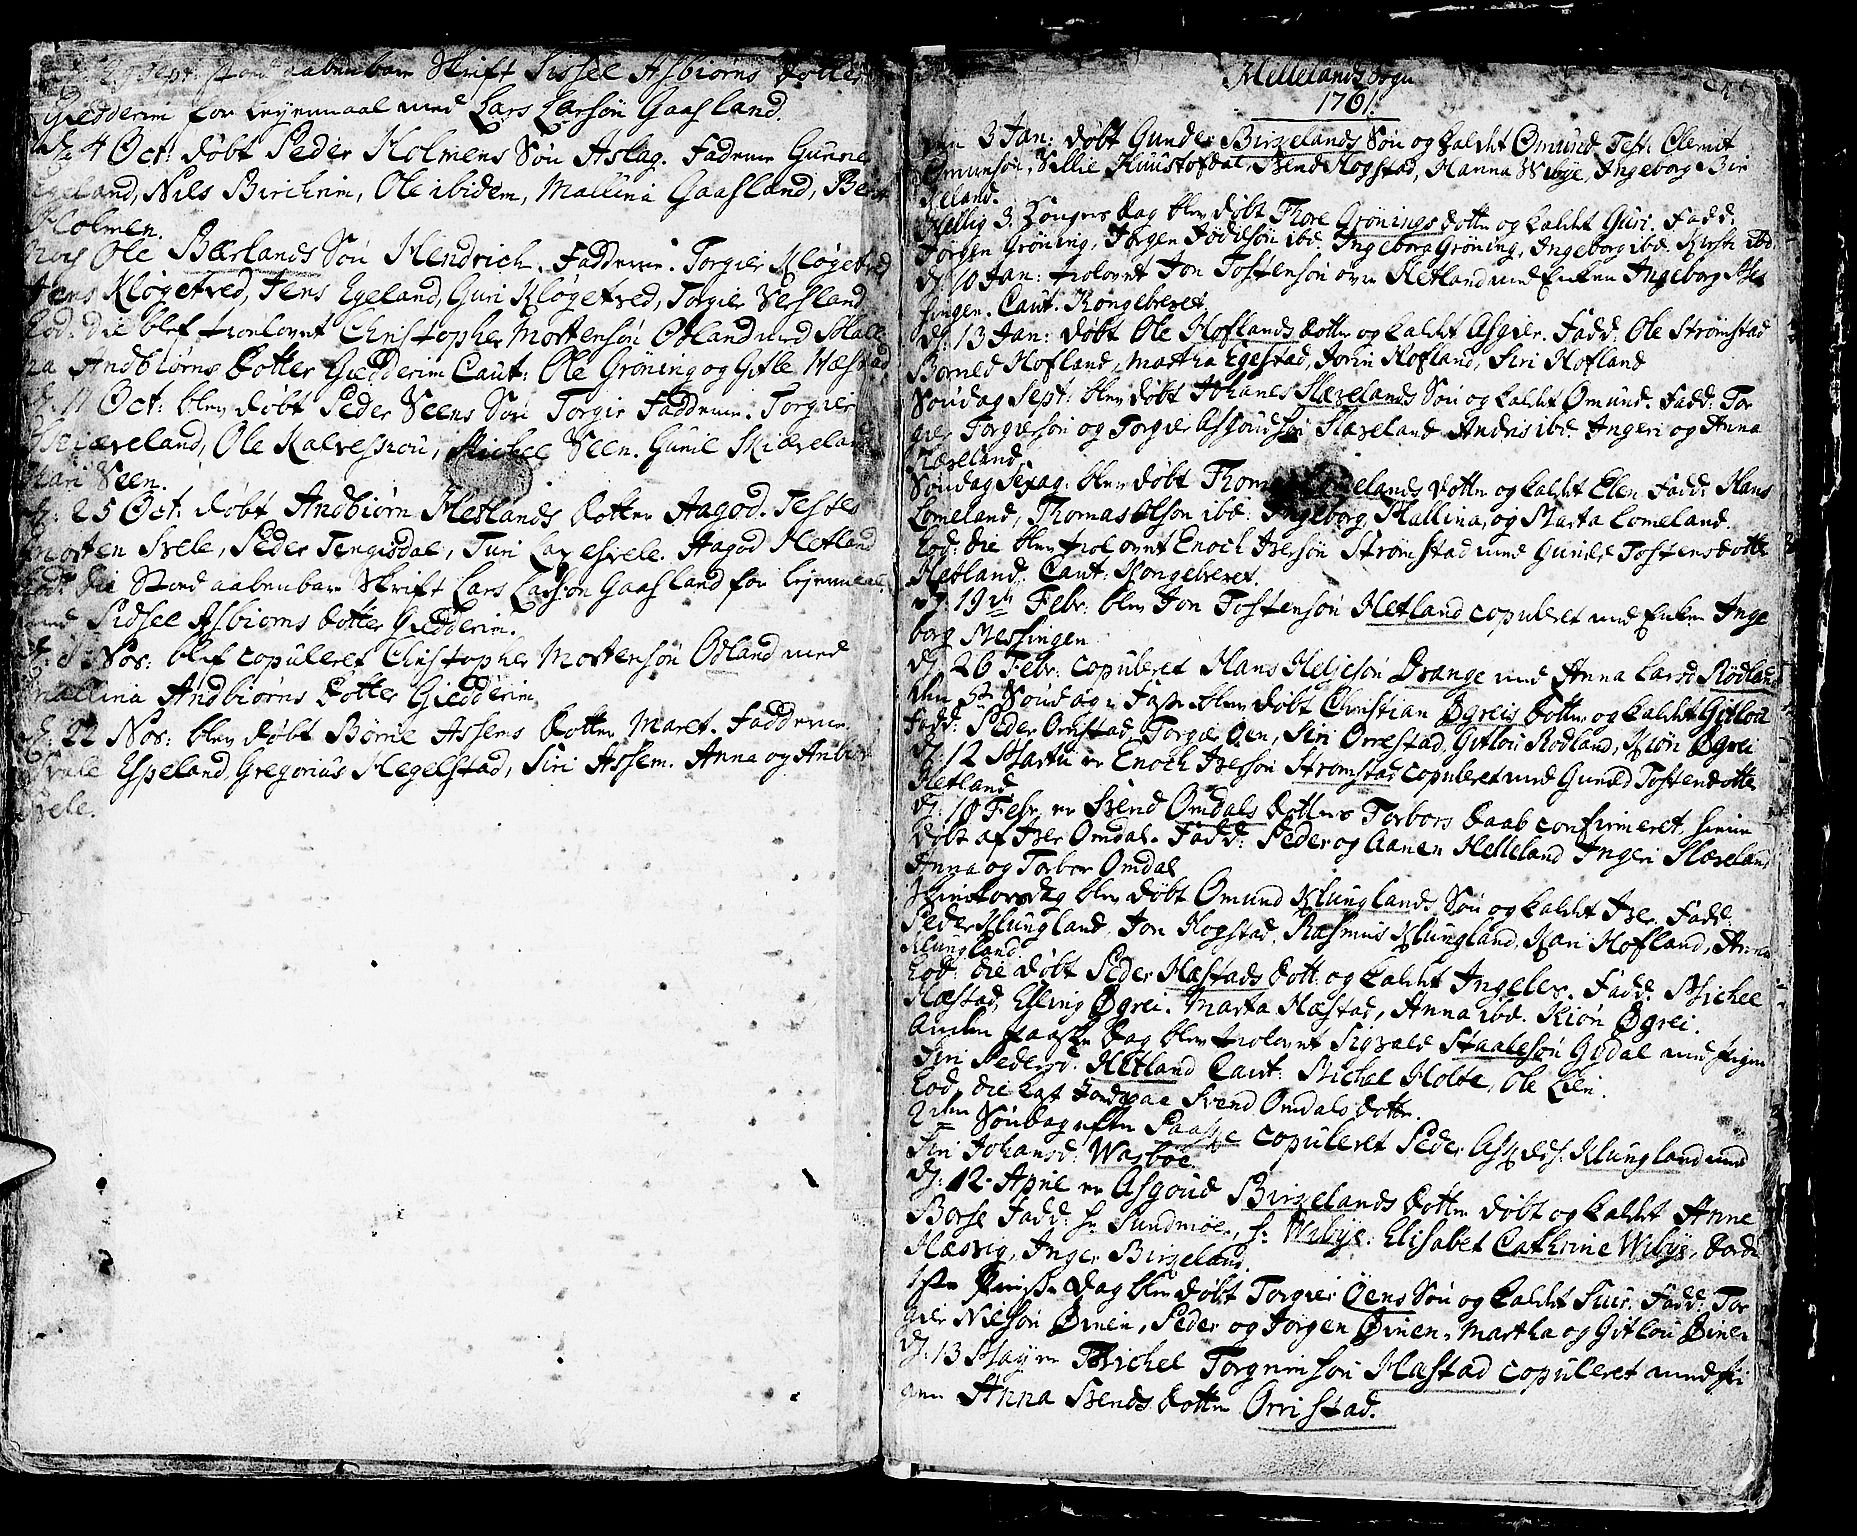 Sept: stod aabenbare Skrift Sissel Asbiørns Dotter
Giedderim for Leyermaal med Lars Larsøn Gaasland.
4 Oct: døbt Peder Holmens Søn Aslag. Fadderne Gunne
Egeland, Nils Birchrim, Ole ibidem, Mallina Gaasland, Berte
Holmen.
Ole Bærlands Søn Hendrich. Fadderne. Torgier Kløgetved
Jens Kløgetved, Jens Egeland, Guri Kløgetved, Torgier Vesland
Eod: Die blef trolovet Christopher Mortensøn Odland med Malli
na Andbiørns Dotter Giedderim Caut: Ole Grøning og Gitle Hæstad
11 Oct: blev døbt Peder Veens Søn Torgir Faddrene. Torgier
Skiæveland, Ole Kalvesmou, Michel Veen. Gunil Skiæveland
Mari Veen.
25 Oct: døbt Andbiørn Hetlands Dotter Aagod. Testes
Morten Svele, Peder Tengisdal, Turi Laxesvele. Aagod Hetland
Eod: die stod aabenbare Skrift Lars Larsøn Gaasland for Leyermaal
med Sidsel Asbiørns Dotter Giedderim.
Nov: blef copuleret Christopher Mortensøn Odland med
Mallina Andbiørns Dotter Giedderim
22 Nov: blev døbt Børne Assems Dotter Maret. Faddrene
Svale Espeland, Gregorius Hegelstad, Siri Assem. Anna og Anbiør
Svele.
Hellelands Sogn
1761.
den 3 Jan: døbt Gunder Birzelands Søn og kaldt Omund Test: Clemit
Omunsøn, Villie Haustofdal, Svend Hogstad, Hanna Wibye, Ingeborg Bir
keland.
Hellig 3 Kongers Dag blev døbt Thore Grønings Dotter og kaldt Guri. Fadd:
Jørgen Grøning, Jørgen Jødilsøn ibd. Ingeborg Grøning, Ingeborg ibd. Kirsti ibd.
d: 10 Jan: trolovet Jon Tostensøn øvre Hetland med Enken Ingeborg Mes
singen. Caut. Kongebrevet
d: 13 Jan: døbt Ole Hoflands Dotter og kaldt Asgier. Fadd: Ole Strømstad
Borned Hofland, Martha Egestad, Jorin Hofland, Siri Hofland
Søndag Sept: blev døbt Johanes Slævelands Søn og kaldt Omund. Fadd: Tor
gier Torgiersøn og Torgier Asgoudsøn Slæveland Andris ibd. Ingeri og Anna
Slæveland.
Søndag Sexag: blev døbt Thomas Lomelands Dotter og kaldt Elen. Fadd: Hans
Lomeland, Thomas Olsøn ibd: Ingeborg, Mallina, og Marta Lomeland.
Eod: die blev trolovet Enoch Iversøn Strømstad med Gunild Tostens Dotter
Hetland. Caut: Kongebrevet.
d: 19de Febr: blev Jon Tostensøn Hetland copuleret med Enken Inge
borg Messingen
d: 26 Febr: copuleret Hans Heljesøn Drange med Anna Larsd Rødland
den 5te Søndag i Faste blev døbt Christian Øgreis Dotter og kaldt Gitlou
Fadd: Peder Orrestad, Torgier Øen, Siri Orrestad, Gitlou Rødland, Kiøn Øgrei
d: 12 Martii er Enoch Iversøn Strømstad copuleret med Gunild Tostendotter
Hetland
d: 18 Febr er Svend Omdals Dotters Torbors Daab confirmeret, hiemme
døbt af Iver Omdal. Fadd: Peder og Aanen Helleland Ingeri Slæveland
Anna og Torbor Omdal
Skiertorsdag blev døbt Omund Klunglands Søn og kaldt Iver. Fadd:
Peder Klungland, Jon Hogstad, Rasmus Klungland, Kari Hofland, Anna
Klungland.
Eod: die døbt Peder Hæstads Dott: og kaldt Ingeler. Fadd: Michel
Hæstad, Elling Øgrei. Marta Hæstad, Anna ibd. Kiøn Øgrei.
Anden Paaske Dag blev trolovet Sigvald Staalesøn Gydal med Pigen
Siri Pedersd: Hetland Caut: Michel Holte, Ole Lien.
Eod. die kast Jord paa Svend Omdals Dotter.
2den Søndag efter Paaske copuleret Peder Klungland med
Siri Johansd: Wasboe.
d: 12 April er Asgoud Birzelands Dotter døbt og kaldt Anne
Borse Fadd: Hr Sundmøer, Hr Wibye. Elisabet Cathrine Wibye, Bordi
Hæsvig, Inger Birzeland.
1ste Pinse Dag blev døbt Torgier Øens Søn og kaldt Siur. Fadd: Tor
gier Nielsøn Øinen, Peder og Jorgen Øinen, Martha og Gitlou Øinen
d: 13 May er Michel Torgrimsøn Hæstad copuleret med Pi
gen Anna Svends Dotter Orristad.